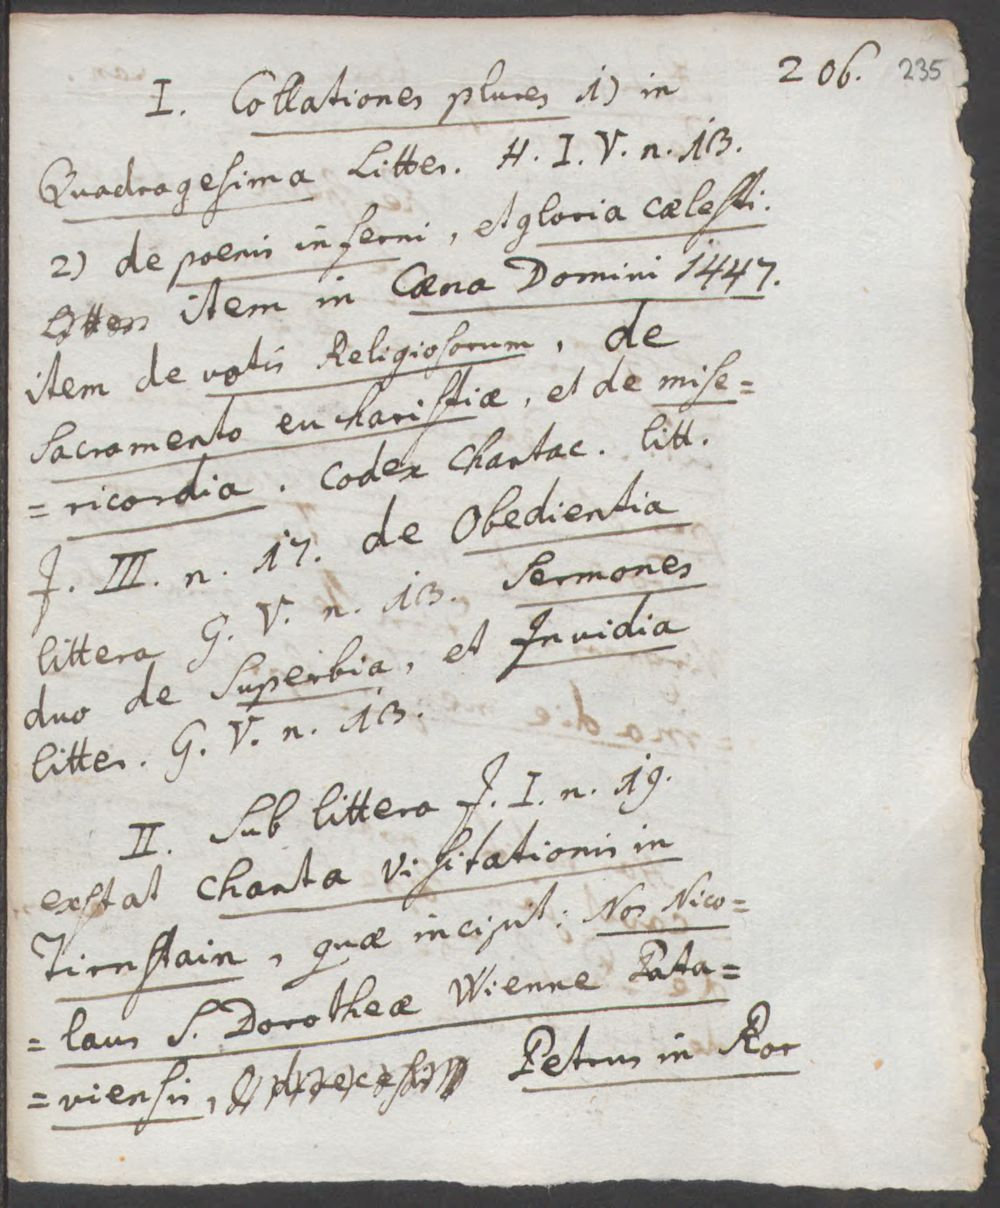 206. 235
I. Collationes plures 1) in
Quadragesima Litter. H. I. V. n. 13.
2) de poenis inferni, et gloria cælesti.
item in Cæna Domini 1447.
item de votis Religiosorum, de
Sacramento eucharistiæ, et de mise=
=ricordia. Codex Chartac. litt.
J. III. n. 17. de Obedientia
littera G. V. n. 13. Sermones
duo de Superbia, et Invidia
litter. G. V. n. 13.
II. Sub littera J. I. n. 19.
exstat Charta Visitationis in
Tirnstain, quæ incipit: Nos Nico=
=laus S. Dorotheæ Wienne Pata=
=viensis, Petrus in Ror